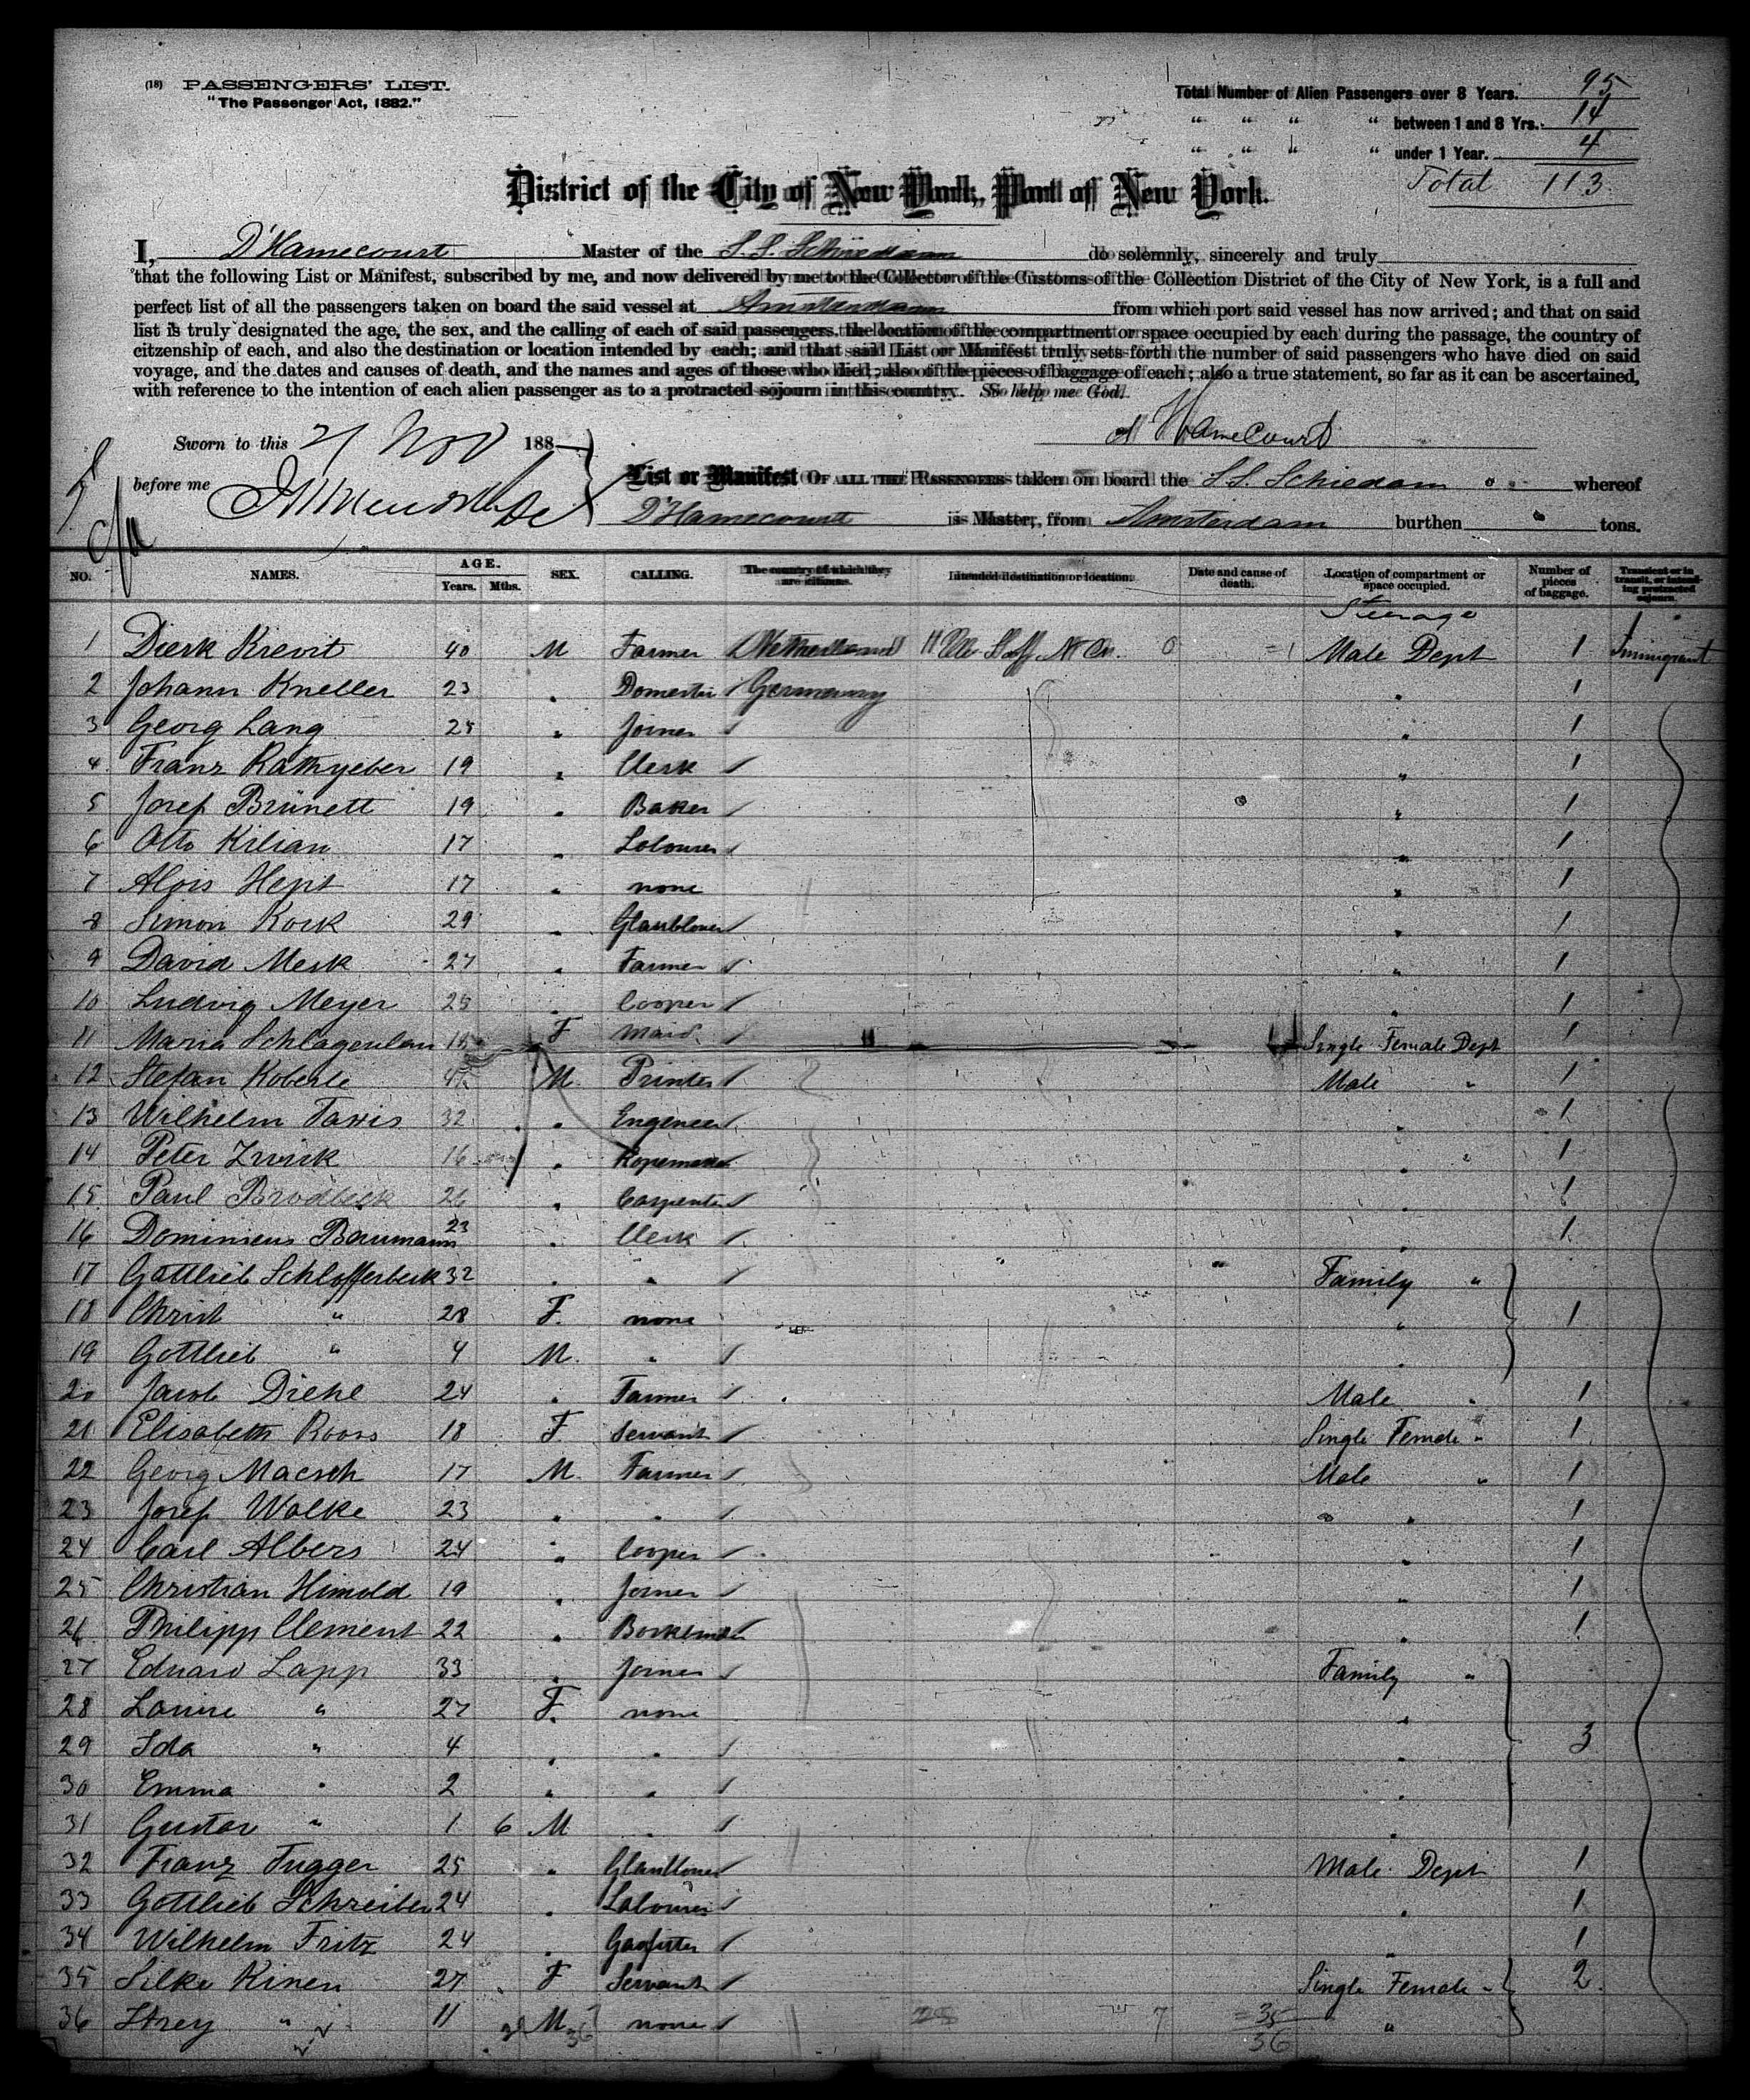 (18) PASSENGERS' LIST.
"The Passenger Act, 1882."
Total Number of Alien Passengers over 8 Years. 95
" " " " between 1 and 8 Yrs. 14
" " " " under 1 Year. 4
Total 113
District of the City of New York, Port of New York.
I, D'Hamecourt Master of the S.S. Schiedam do solemnly, sincerely and truly
that the following List or Manifest, subscribed by me, and now delivered by me to the Collector of the Customs of the Collection District of the City of New York, is a full and
perfect list of all the passengers taken on board the said vessel at Amsterdam from which port said vessel has now arrived; and that on said
list is truly designated the age, the sex, and the calling of each of said passengers, the location of the compartment or space occupied by each during the passage, the country of
citzenship of each, and also the destination or location intended by each; and that said List or Manifest truly sets forth the number of said passengers who have died on said
voyage, and the dates and causes of death, and the names and ages of those who died; also of the pieces of baggage of each; also a true statement, so far as it can be ascertained,
with reference to the intention of each alien passenger as to a protracted sojourn in this country. So help me God.
Sworn to this 21 Nov 188
d'Hamecourt
before me
List or Manifest OF ALL THE PASSENGERS taken on board the S.S. Schiedam whereof
D'Hamecourt is Master, from Amsterdam burthen tons.
NO. NAMES. AGE. Years. Mths. SEX. CALLING. The country of which they are citizens. Intended destination or location. Date and cause of death. Location of compartment or space occupied. Number of pieces of baggage. Transient or in transit, or intending protracted sojourn.
Steerage
1 Dierk Krevit 40 M Farmer Netherland Male Dept 1 Immigrant
2 Johann Kneller 23 " Domestic Germany " 1
3 Georg Lang 25 " Joiner " 1
4 Franz Rathgeber 19 " Clerk " 1
5 Josef Brünett 19 " Baker " 1
6 Otto Kilian 17 " Labourer " 1
7 Alois Hept 17 " none " 1
8 Simon Kock 29 " Glasblower " 1
9 David Merk 27 " Farmer " 1
10 Ludwig Meyer 25 " Cooper " 1
11 Maria F Maid Single Female Dept 1
12 Stefan Koberle M. Printer Male " 1
13 Wilhelm Taxis 32 " Engeneer " 1
14 Peter Zwick 16 " Ropemaker " 1
15 Paul Brodbeck 26 " Carpenter " 1
16 Dominicus Baumann 23 " Clerk " 1
17 Gottlieb Schlofferbeck 32 " " Family "
18 Christ " 28 F. none " 1
19 Gottlieb " 4 M. " "
20 Jacob Diehl 24 " Farmer Male " 1
21 Elisabeth Roos 18 F. Servant Single Female " 1
22 Georg Maesch 17 M. Farmer Male " 1
23 Josef Walke 23 " " " " 1
24 Carl Albers 24 " Cooper " 1
25 Christian Himold 19 " Joiner " 1
26 Philipp Clement 22 " " 1
27 Eduard Lapp 33 " Joiner Family "
28 Louise " 27 F. none "
29 Ida " 4 " " " 3
30 Emma " 2 " " "
31 Gustav " 1 6 M " "
32 Franz Fugger 25 " Glasblower Male Dept 1
33 Gottlieb Schreiber 24 " Labourer " 1
34 Wilhelm Fritz 24 " Gasfitter " 1
35 Silke Kinen 27 F Servant Single Female " 2
36 " 11 M. none "
35
36